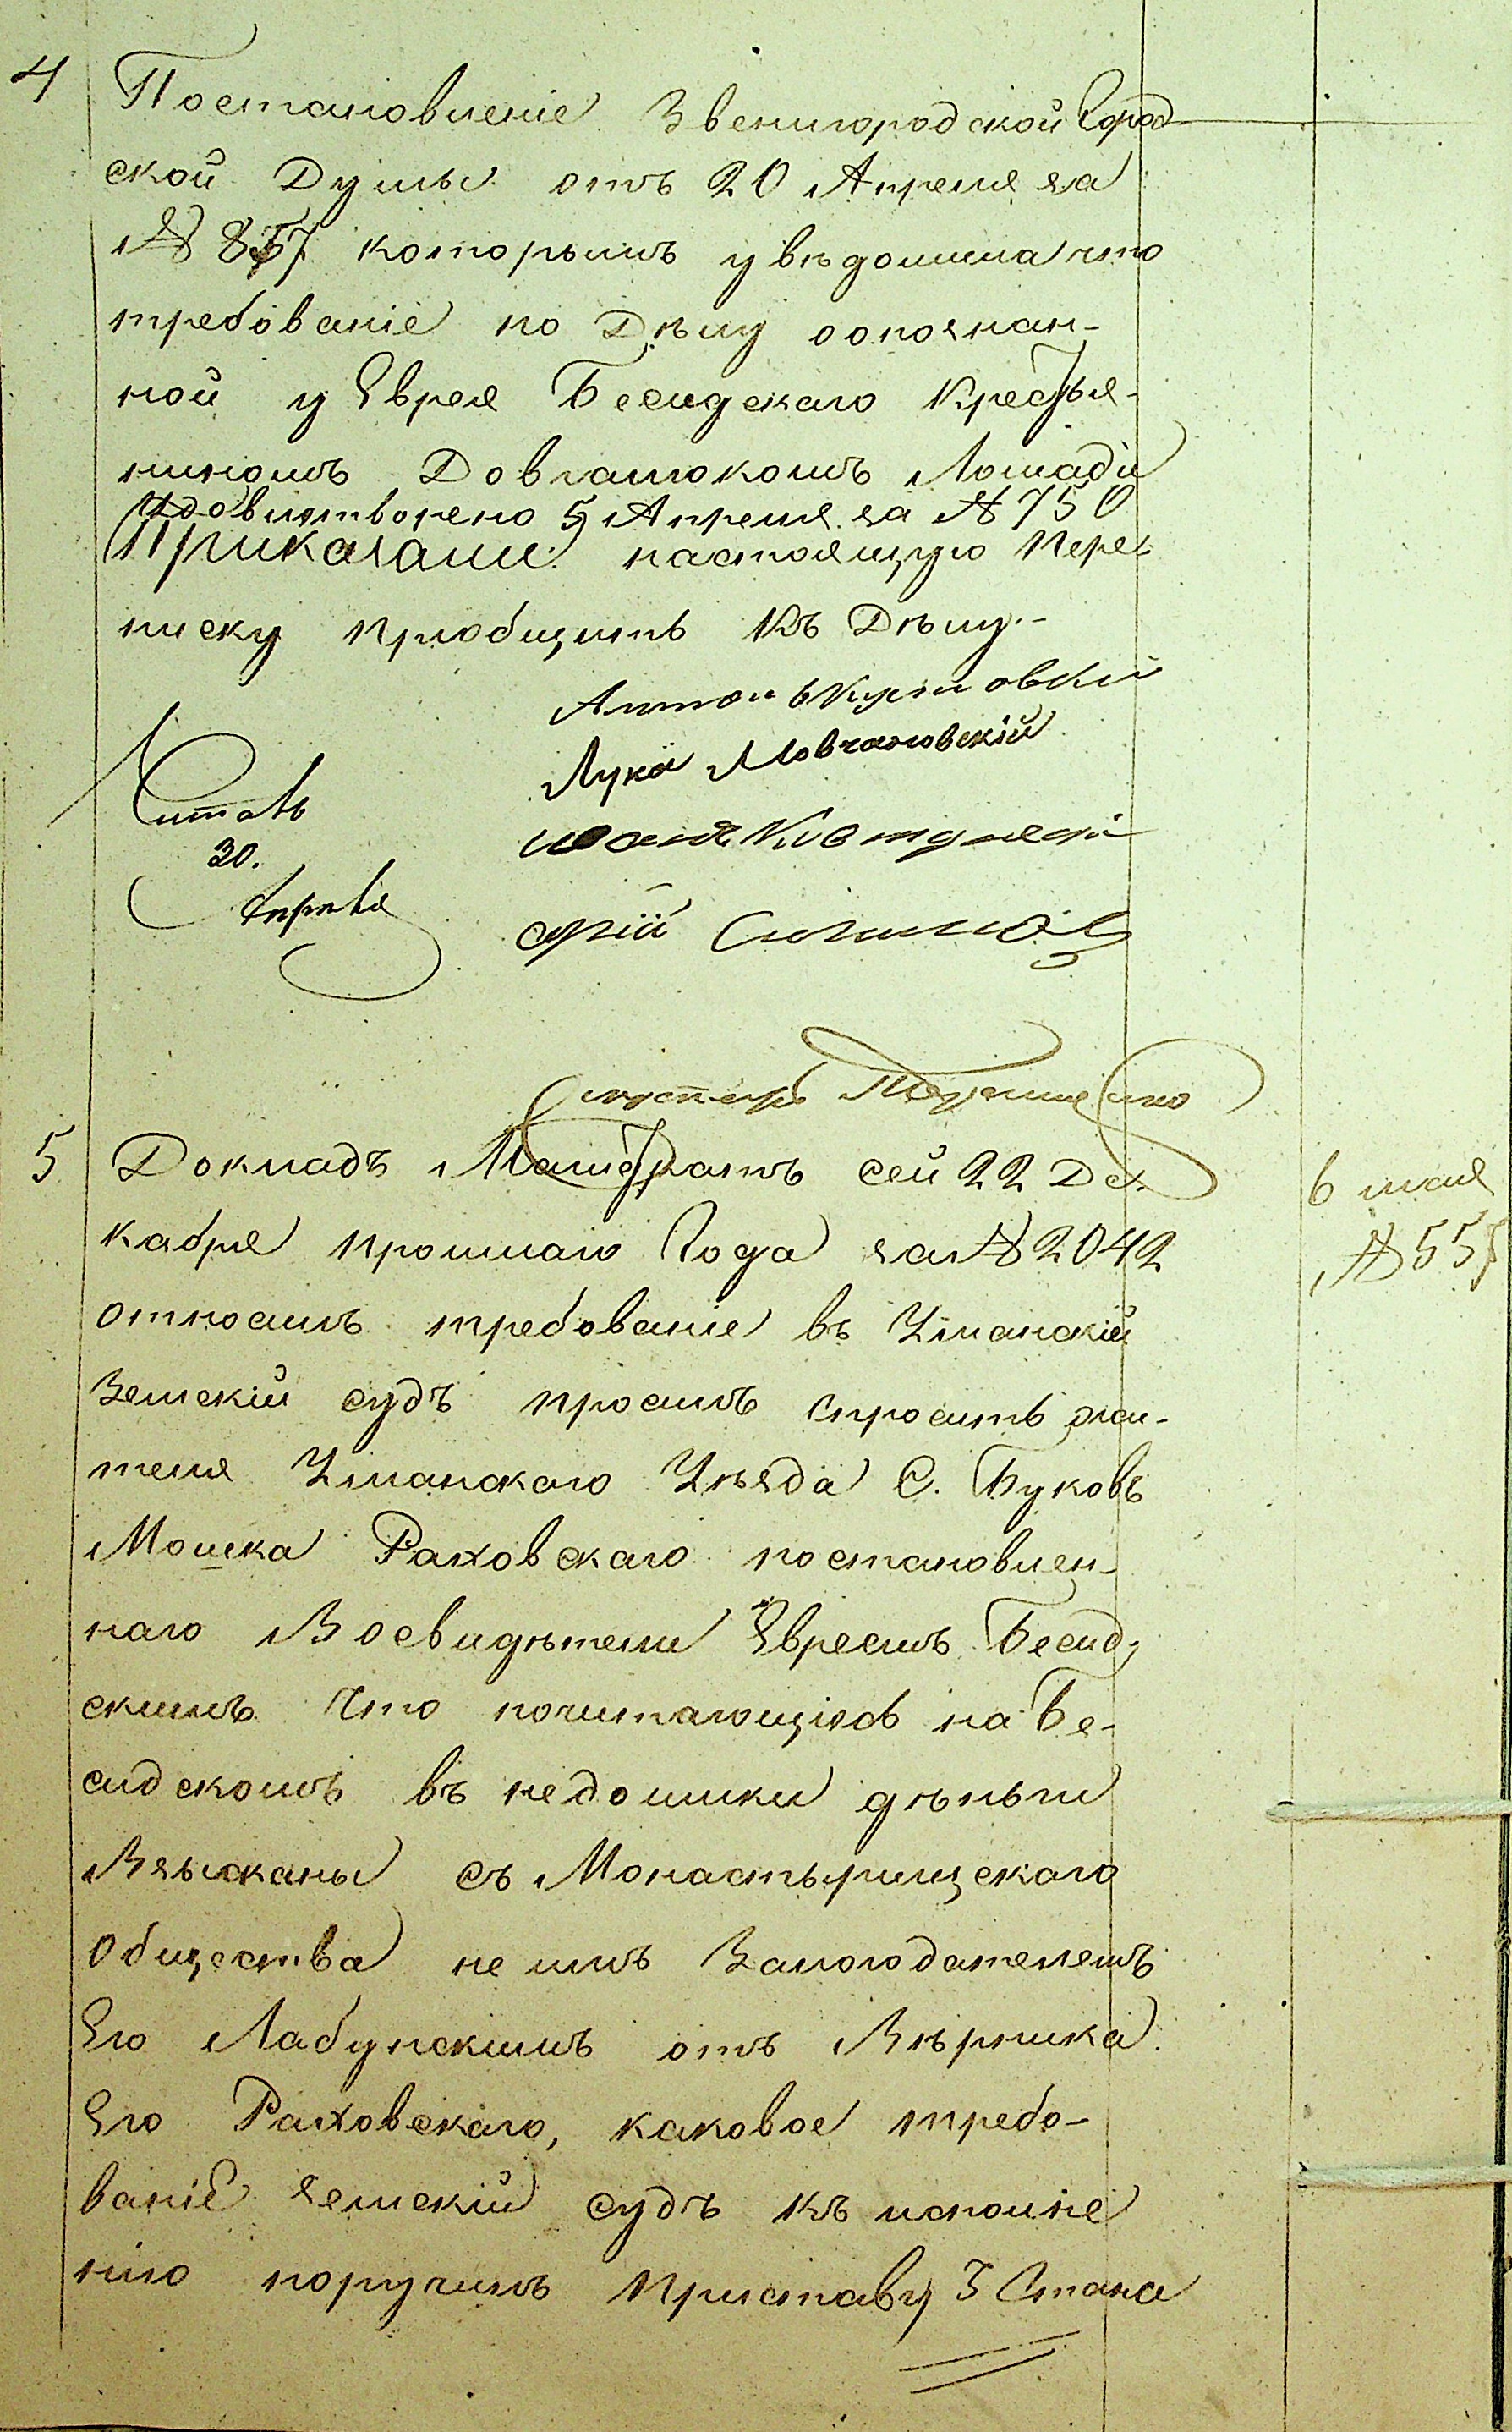 4 Постановленіе Звенигородской Город
ской Думы отъ 20 Апреля за
№ 857 которымъ увѣдомила что
требованіе по Дѣлу оопознан-
ной у Еврея Бесидскаго Крестья-
ниномъ Довгалюкомъ Лошади
удовлетворено 5 Апреля за № 750
Приказали: настоящую Пере-
писку пріобщить Къ Дѣлу.-
Лука Мовчановскій
Читалъ
30.
Апрѣля
5 Докладъ Магистратъ сей 22 Де-
кабря прошлаго Года за № 2042
относилъ требованіе въ Уманскій
Земскій судъ просилъ спросить жи-
теля Уманскаго Уѣзда С. Буковъ
Мошка Раховскаго постановлен-
наго Воевидѣтели Евреемъ Бесид-
скимъ Что почитающіясь на Бе-
сидскомъ въ недоимки дѣньги
Взысканы съ Монастырищскаго
Общества не имъ Залогодателемъ
Его Лабунскимъ отъ Вѣрника
Его Раховскаго, каковое требо-
ваніе Земскій судъ къ исполне
нію поручилъ Приставу 3 Стана
6 мая
№ 555